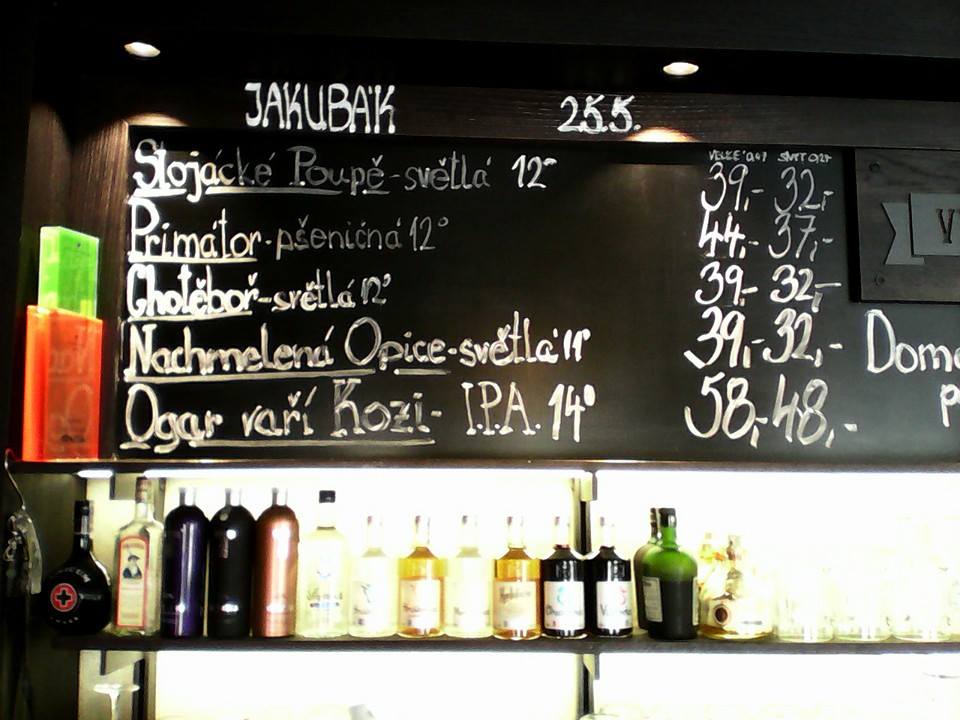 JAKUBÁK 25.5.
VELKÉ 0,4l SMET 0,2l
Slojácké Poupě-světlá 12° 39,- 32,-
Primátor-pšeničná 12° 44,- 37,-
Chotěboř-světlá 12° 39,- 32,-
Nachmelená Opice-světlá 11° 39,- 32,-
Ogar vaří Kozi- I.P.A. 14° 58,- 48,-
V
Dom
p